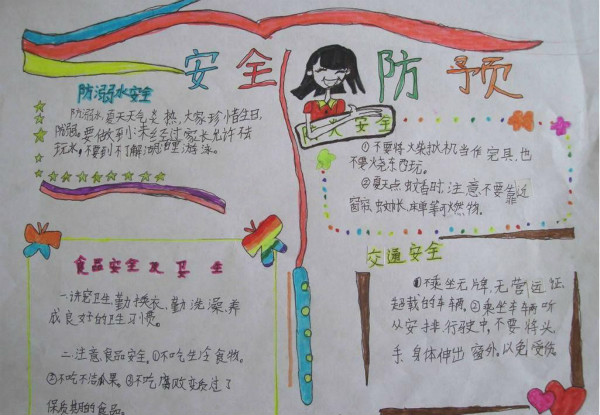 安全防预
防溺水安全
防溺水,夏天天气炎热,大家珍惜生日,
防溺。要做到:未经过家长允许去
玩水,不要到不了解湖里游泳。
防火安全
①不要将火柴打火机当作完具,也
不要烧东西玩。
②夏天点蚊香时,注意不要靠近
窗帘、蚊帐、床单等可燃物。
食品安全及卫生
一.讲究卫生,勤换衣,勤洗澡,养
成良好的卫生习惯。
二.注意食品安全。①不吃生冷食物。
②不吃不洁瓜果。③不吃腐败变质过了
保质期的食品。
交通安全
①不乘坐无牌,无营运证,
超载的车辆。②乘坐车辆听
从安排行驶中,不要将头、
手、身体伸出窗外,以免受伤